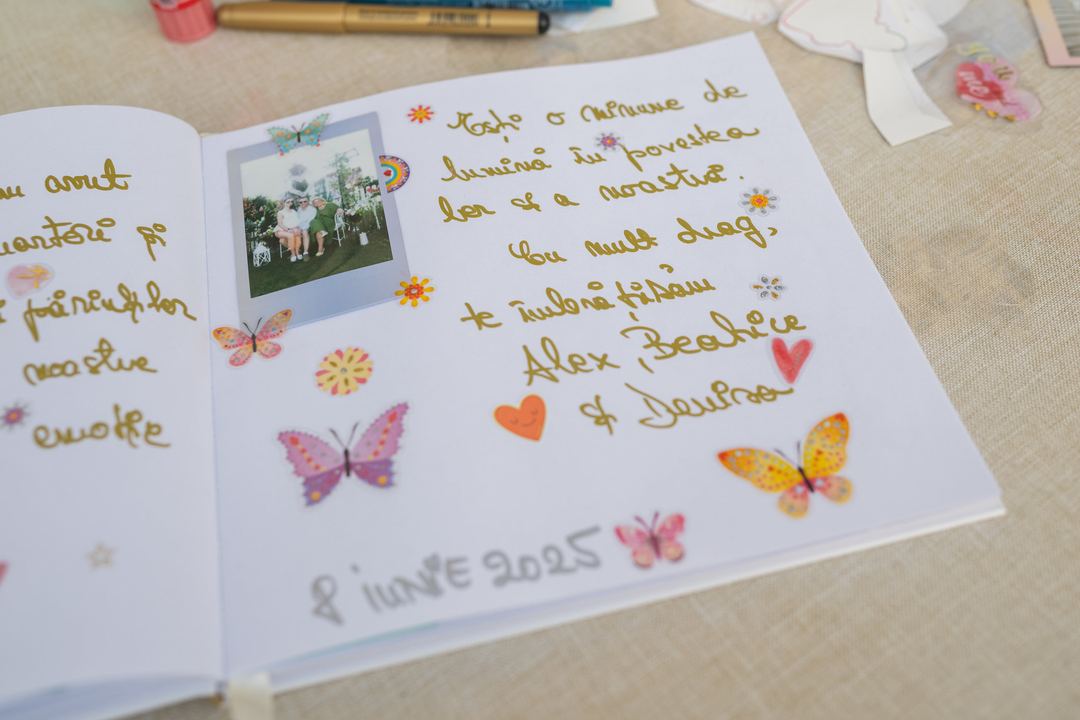 am avut
martori și
părinților
noastre
emoție
Ești o minune de
lumină în povestea
lor și a noastră.
Cu mult drag,
te îmbrățișăm
Alex, Beatrice
& Denisa
8 iunie 2025
me